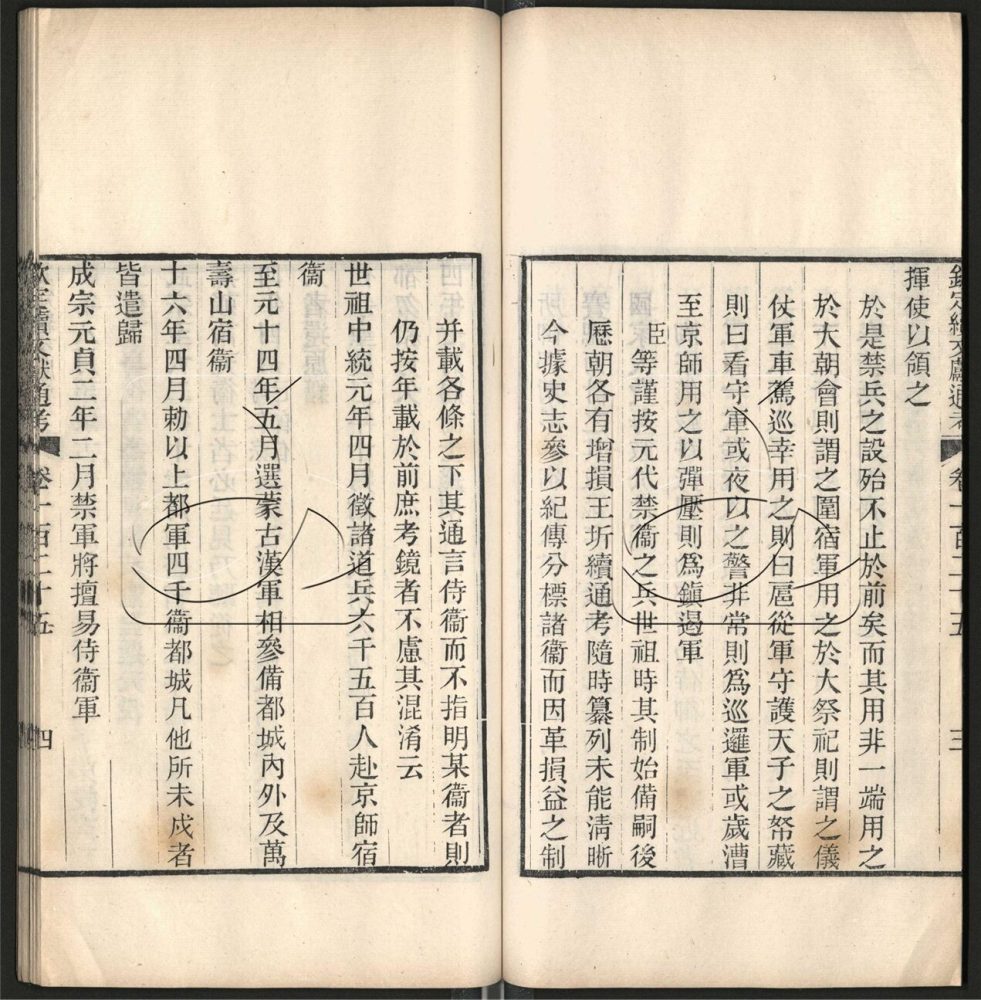 欽定續文獻通考 卷一百二十五 三
揮使以領之
於是禁兵之設殆不止於前矣而其用非一端用之
於大朝會則謂之圍宿軍用之於大祭祀則謂之儀
仗軍車駕巡幸用之則曰扈從軍守護天子之帑藏
則曰看守軍或夜以之警非常則爲巡邏軍或歲漕
至京師用之以彈壓則爲鎭遏軍
臣等謹按元代禁衞之兵世祖時其制始備嗣後
歷朝各有增損王圻續通考隨時纂列未能淸晰
今據史志參以紀傳分標諸衞而因革損益之制
并載各條之下其通言侍衞而不指明某衞者則
仍按年載於前庶考鏡者不慮其混淆云
世祖中統元年四月徵諸道兵六千五百人赴京師宿
衞
至元十四年五月選蒙古漢軍相參備都城內外及萬
壽山宿衞
十六年四月勅以上都軍四千衞都城凡他所未戍者
皆遣歸
成宗元貞二年二月禁軍將擅易侍衞軍
欽定續文獻通考 卷一百二十五 四